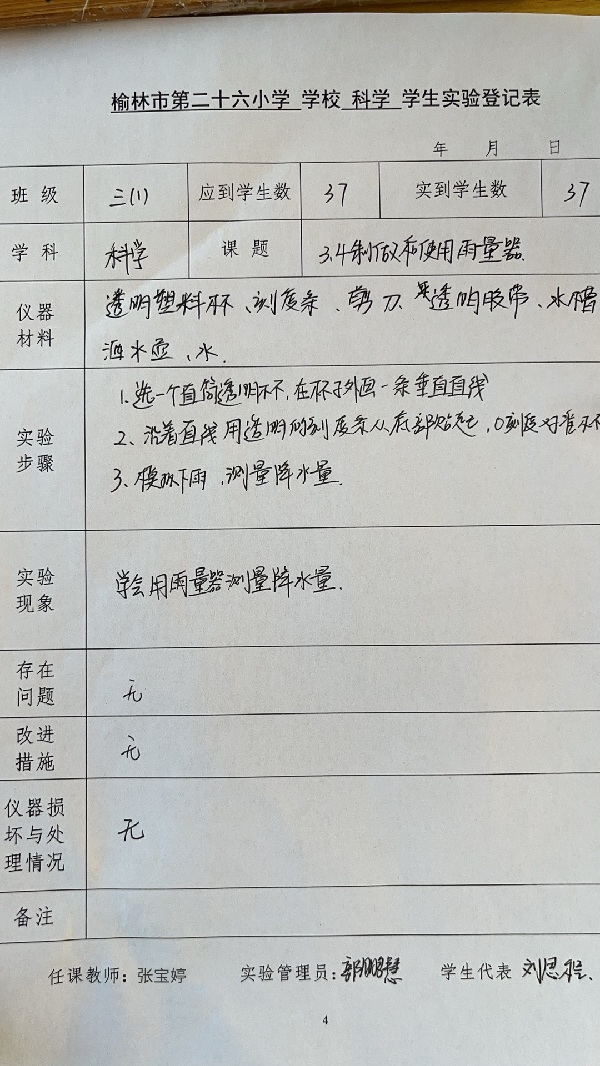 榆林市第二十六小学 学校 科学 学生实验登记表
年 月 日
班级 三(1) 应到学生数 37 实到学生数 37
学科 科学 课题 3.4制做和使用雨量器.
仪器材料 透明塑料杯、刻度条、剪刀、透明胶带、水槽
洒水壶、水.
实验步骤 1.选一个直筒透明杯,在杯子外画一条垂直直线
2、沿着直线用透明的刻度条从底部贴起,0刻度对准杯
3、模拟下雨,测量降水量.
实验现象 学会用雨量器测量降水量.
存在问题 无
改进措施 无
仪器损坏与处理情况 无
备注
任课教师:张宝婷 实验管理员:郭鹏慧 学生代表 刘思
4